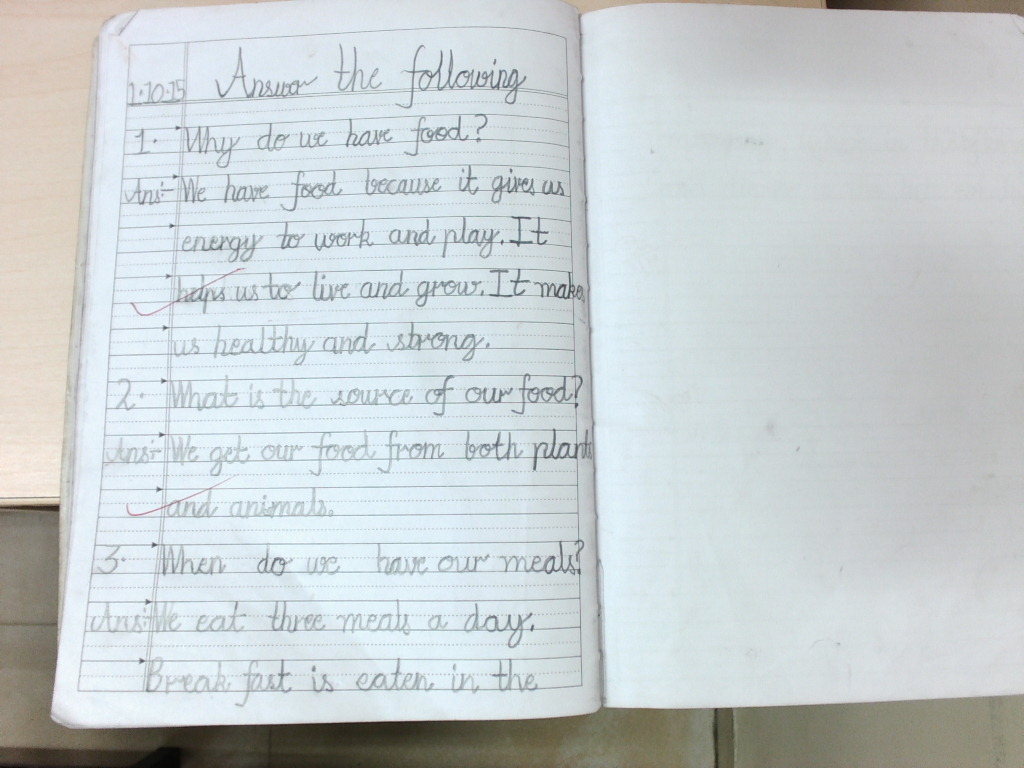 1.10.15 Answer the following
1. Why do we have food?
Ans:- We have food because it gives us
energy to work and play. It
helps us to live and grow. It makes
us healthy and strong.
2. What is the source of our food?
Ans:- We get our food from both plants
and animals.
3. When do we have our meals?
Ans:- We eat three meals a day.
Break fast is eaten in the